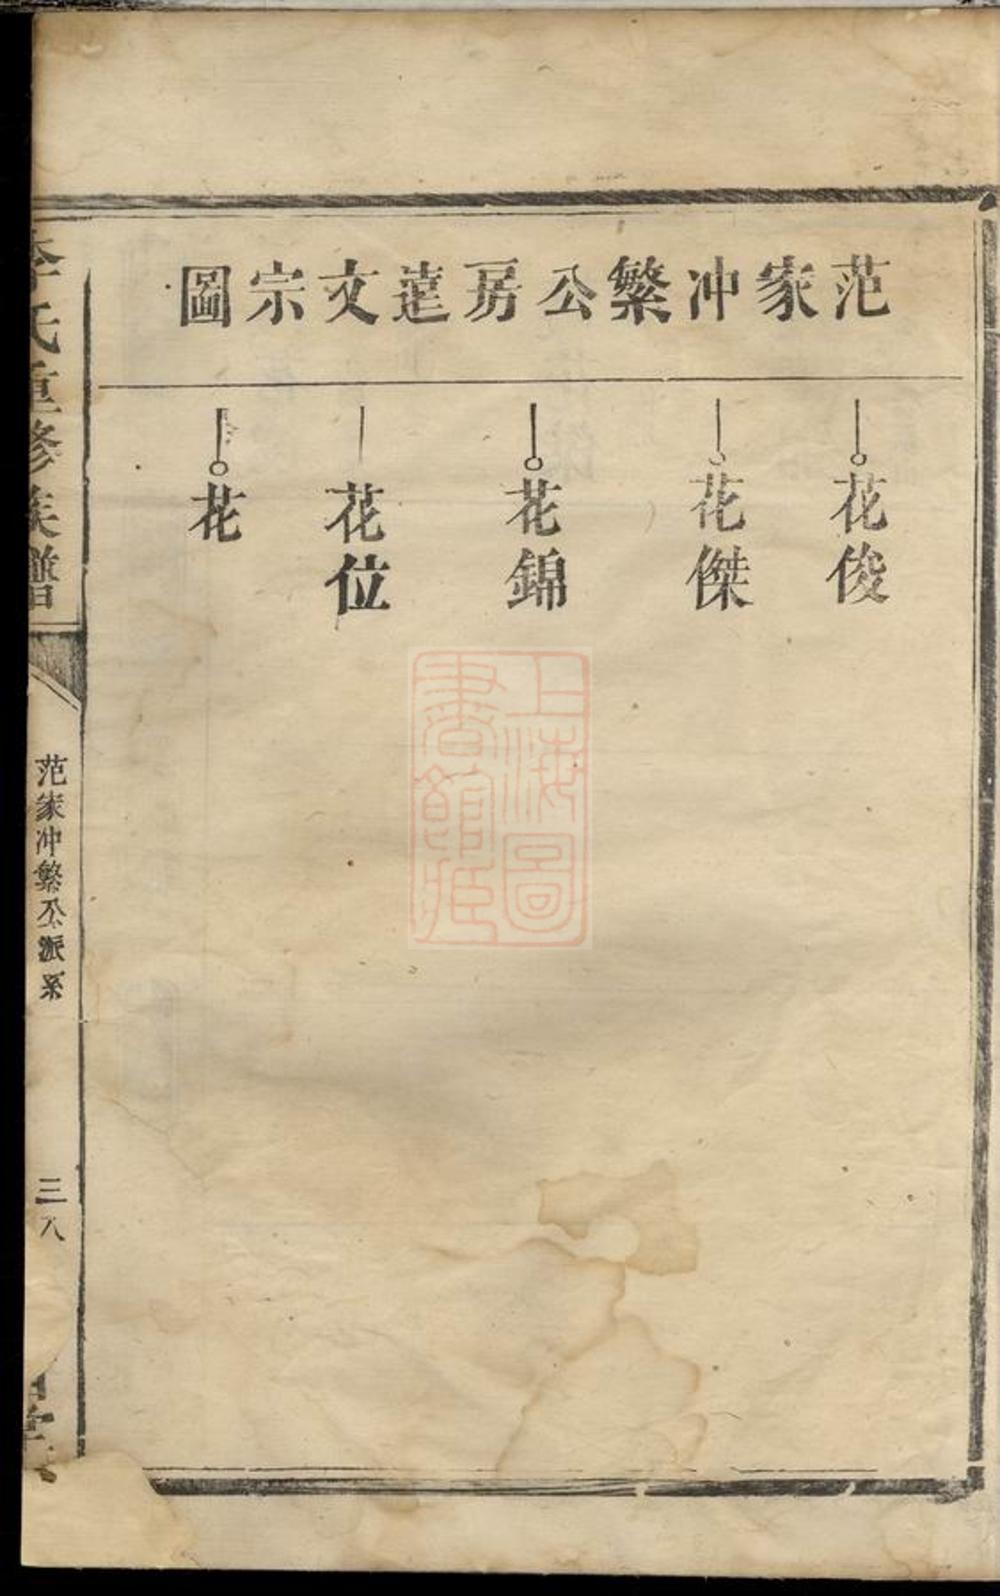 范家冲繁公房莲文宗圖
花俊
花傑
花錦
花位
花
李氏重修族譜
范家冲繁公派系
三八
堂
上海圖書館藏